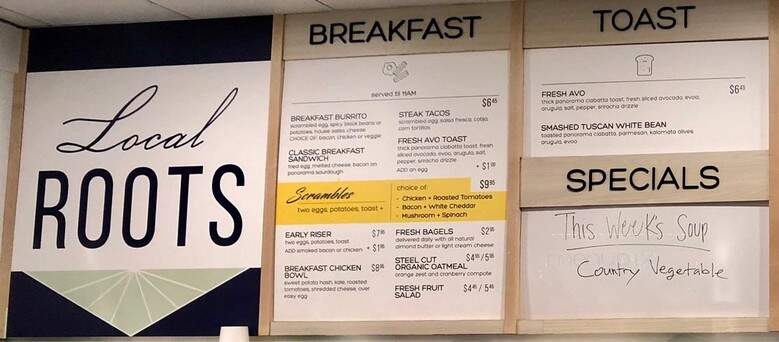 Local
ROOTS
BREAKFAST
served til 11AM
$6⁴⁵
BREAKFAST BURRITO
scrambled egg, spicy black beans or
potatoes, house salsa, cheese
CHOICE OF: bacon, chicken or veggie
CLASSIC BREAKFAST
SANDWICH
fried egg, melted cheese, bacon on
panorama sourdough
STEAK TACOS
scrambled egg, salsa fresca, cotija,
corn tortillas
FRESH AVO TOAST
thick panorama ciabatta toast, fresh
sliced avocado, evoo, arugula, salt,
pepper, sriracha drizzle
ADD an egg + $1
$9⁹⁵
Scrambles
two eggs, potatoes, toast +
choice of:
- Chicken + Roasted Tomatoes
- Bacon + White Cheddar
- Mushroom + Spinach
EARLY RISER $7
two eggs, potatoes, toast
ADD smoked bacon or chicken + $1
BREAKFAST CHICKEN $8
BOWL
sweet potato hash, kale, roasted
tomatoes, shredded cheese, over
easy egg
FRESH BAGELS $2
delivered daily with all natural
almond butter or light cream cheese
STEEL CUT $4 / 5
ORGANIC OATMEAL
orange zest and cranberry compote
FRESH FRUIT $4 / 5
SALAD
TOAST
FRESH AVO $6⁴⁵
thick panorama ciabatta toast, fresh sliced avocado, evoo,
arugula, salt, pepper, sriracha drizzle
SMASHED TUSCAN WHITE BEAN
toasted panorama ciabatta, parmesan, kalamata olives
arugula, evoo
SPECIALS
This Week's Soup
Country Vegetable